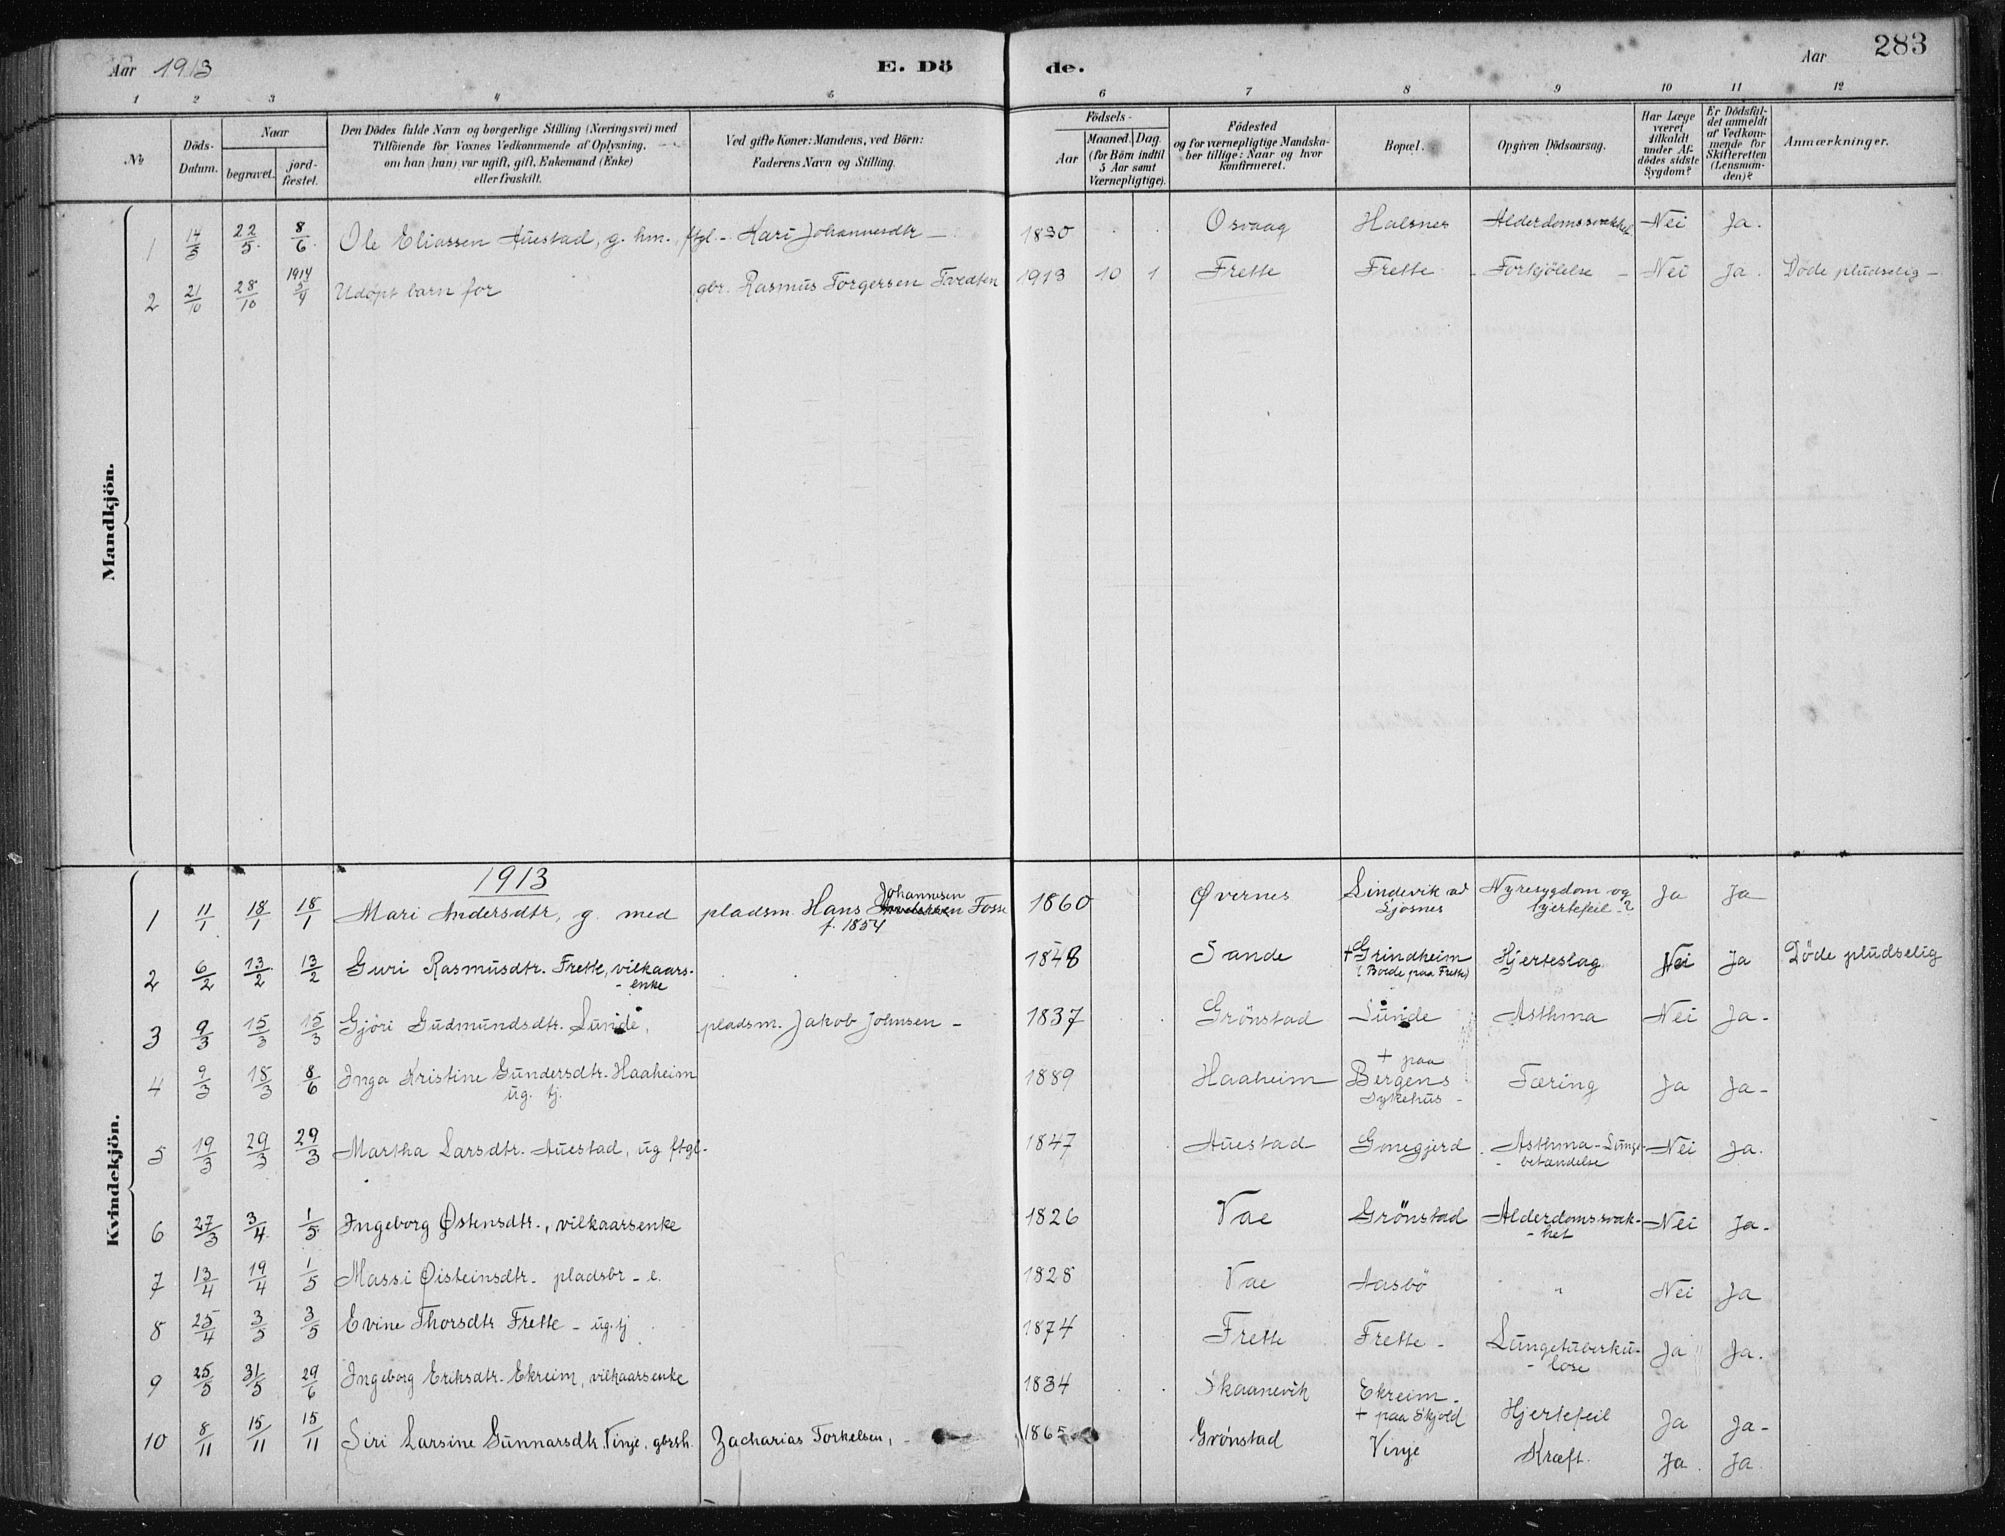 Aar 1913 E. Dö de. Aar 283
1 2 3 4 5 6 7 8 9 10 11 12
No
Döds-Datum.
Naar
begravet.
jord-fæstet.
Den Dödes fulde Navn og borgerlige Stilling (Næringsvei) med
Tilföiende for Voxnes Vedkommende af Oplysning,
om han (hun) var ugift, gift, Enkemand (Enke)
eller fraskilt.
Ved gifte Koner: Mandens, ved Börn:
Faderens Navn og Stilling.
Födsels-
Aar
Maaned. Dag.
(for Börn indtil
5 Aar samt
Værnepligtige).
Födested
og for værnepligtige Mandska-
ber tillige: Naar og hvor
konfirmeret.
Bopæl.
Opgiven Dödsaarsag.
Har Læge
været
tilkaldt
under Af-
dödes sidste
Sygdom?
Er Dödsfal-
det anmeldt
af Vedkom-
mende for
Skifteretten
(Lensman-
den)?
Anmærkninger.
Mandkjön.
1 14/5 22/5 8/6 Ole Eliassen Auestad, g. hm. ftgl. - Kari Johannesdtr - 1830 Osvaag Halsnes Alderdomssvakhet Nei Ja.
2 21/10 28/10 1914 5/4 Udöpt barn for gbr. Rasmus Torgersen Tvedten 1913 10 1 Frette Frette - Forkjölelse - Nei Ja Døde pludselig -
Kvindekjön.
1913
1 11/1 18/1 18/1 Mari Andersdtr, g. med pladsm. Hans Johannesen Fosse 1860 Øvernes Lindevik ved Nyresygdom og Ja Ja
f. 1854 Sjøsnes hjertefeil-?
2 6/2 13/2 13/2 Guri Rasmusdtr. Frette, vilkaars- 1848 Sande + Grindheim Hjerteslag Nei Ja Døde pludselig
- enke (Boede paa Frette)
3 9/3 15/3 15/3 Gjöri Gudmundsdtr. Lunde, pladsm. Jakob Johnsen - 1837 Grönstad Lunde Asthma Nei Ja -
4 9/3 18/3 8/6 Inga Kristine Gundersdtr. Haaheim 1889 Haaheim + paa Bergens Tæring Ja Ja -
ug. tj. Sykehus -
5 19/3 29/3 29/3 Martha Larsdtr. Auestad, ug ftgl. 1847 Auestad Gonegjerd Asthma - Lunge- Nei Ja.
- betændelse
6 27/3 3/4 1/5 Ingeborg Østensdtr., vilkaarsenke 1826 Vae Grönstad Alderdomssvak- Nei Ja -
- het
7 13/4 19/4 1/5 Massi Øisteinsdtr. pladsbr - e. 1828 Vae Aasbö " Nei Ja
8 25/4 3/5 3/5 Evine Thorsdtr Frette - ug. tj 1874 Frette Frette - Lungetuberku- Ja Ja.
- lose
9 25/5 31/5 29/6 Ingeborg Eriksdtr. Ekreim, vilkaarsenke 1834 Skaanevik Ekreim - Hjertefeil Ja Ja -
10 8/11 15/11 15/11 Siri Larsine Gunnarsdtr. Vinje, gbrsh. Zacharias Torkelsen, 1865 Grönstad + paa Skjold Kræft. Ja. Ja.
Vinje